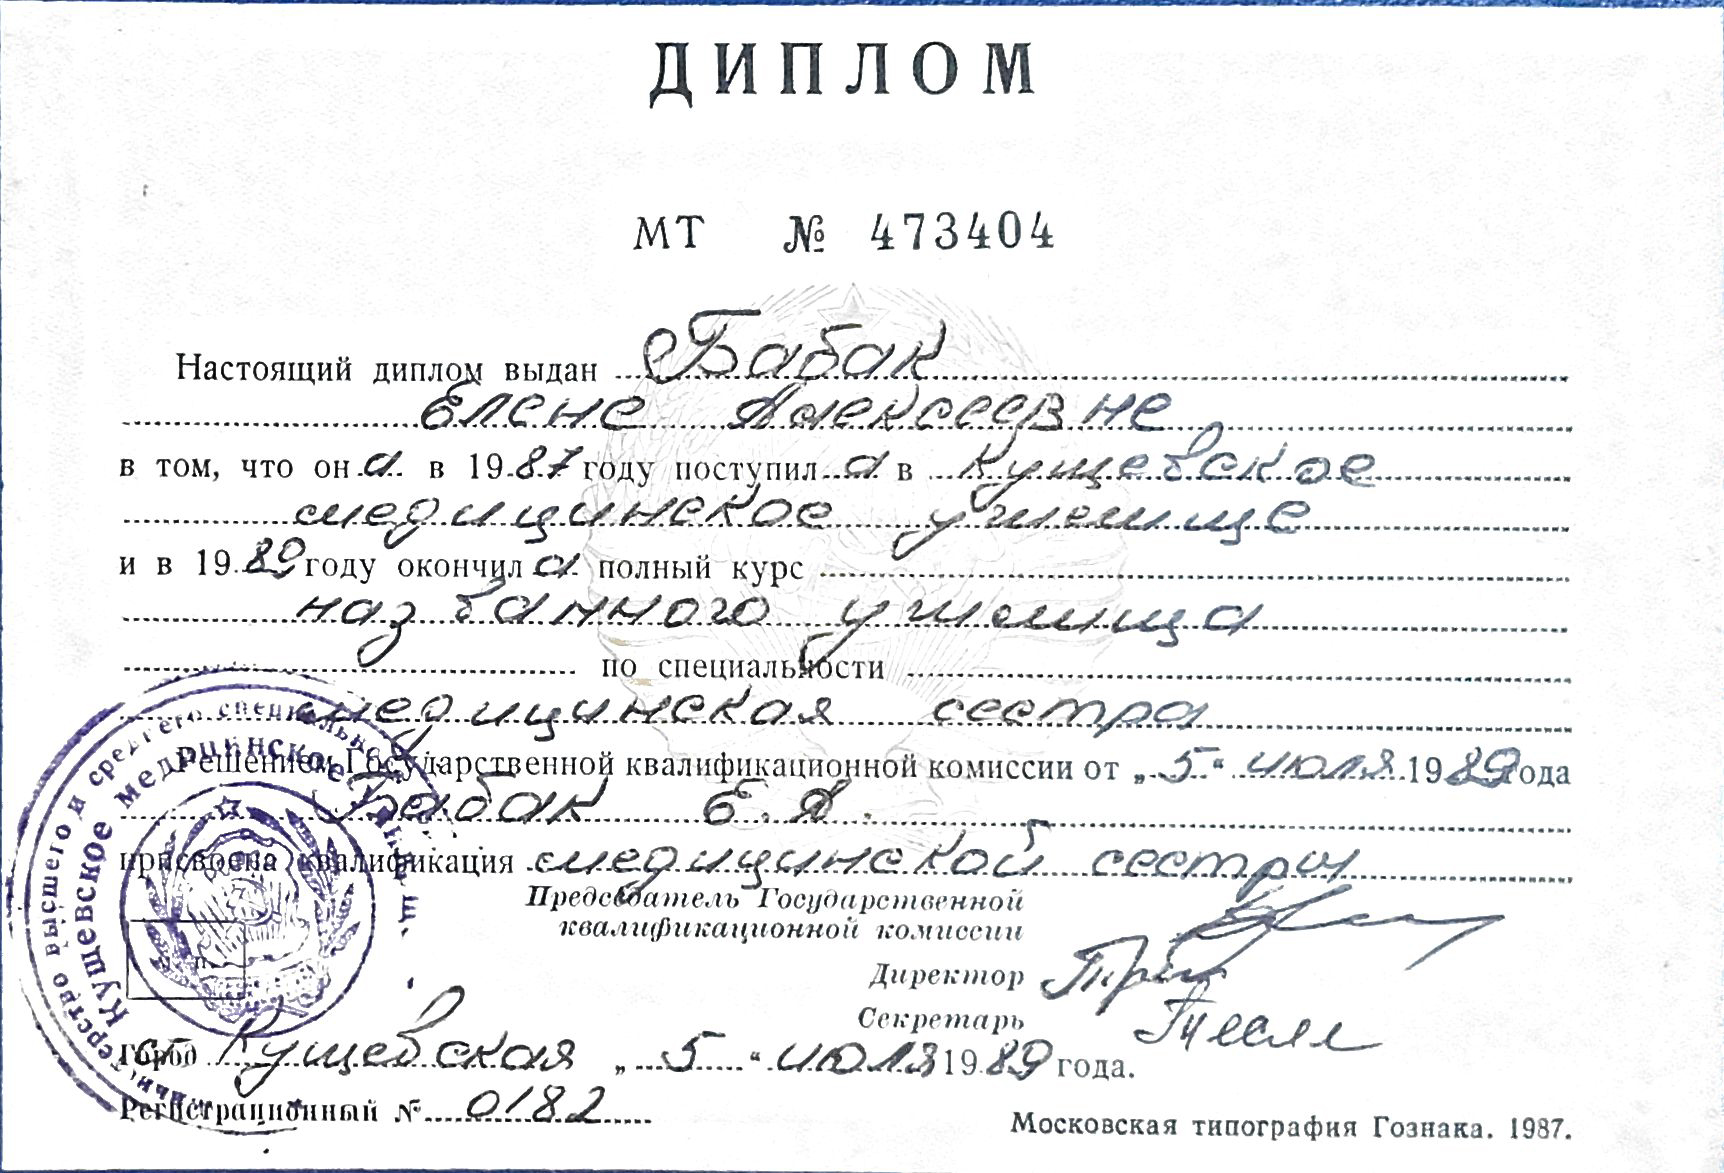 ДИПЛОМ
МТ № 473404
Настоящий диплом выдан Бабак
Елене Алексеевне
в том, что она в 1987 году поступила в Кущевское
медицинское училище
и в 1989 году окончила полный курс
названного училища
по специальности
медицинская сестра
Решением Государственной квалификационной комиссии от „5“ июля 1989 года
Бабак Е.А.
присвоена квалификация медицинской сестры
Председатель Государственной
квалификационной комиссии
Директор
Секретарь
Город ст. Кущевская „5“ июля 1989 года.
Регистрационный № 0182
Московская типография Гознака. 1987.
высшего и среднего специального
Кущевское медицинское училище